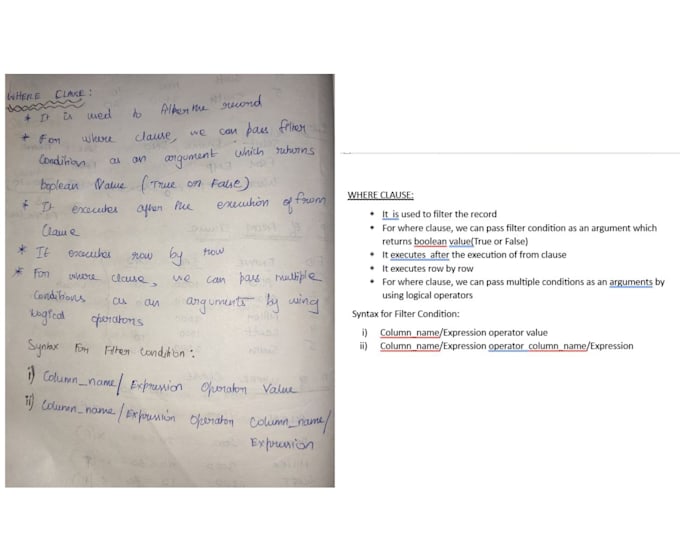 WHERE CLAUSE:
* It is used to filter the record
* For where clause, we can pass filter
condition as an argument which returns
boolean value (True or False)
* It executes after the execution of from
Clause
* It executes row by row
* For where clause, we can pass multiple
Conditions as an arguments by using
Logical operators
Syntax for Filter condition:
i) Column_name/ Expression Operator Value
ii) Column_name/Expression Operator Column_name/
Expression
WHERE CLAUSE:
• It is used to filter the record
• For where clause, we can pass filter condition as an argument which
returns boolean value(True or False)
• It executes after the execution of from clause
• It executes row by row
• For where clause, we can pass multiple conditions as an arguments by
using logical operators
Syntax for Filter Condition:
i) Column_name/Expression operator value
ii) Column_name/Expression operator column_name/Expression